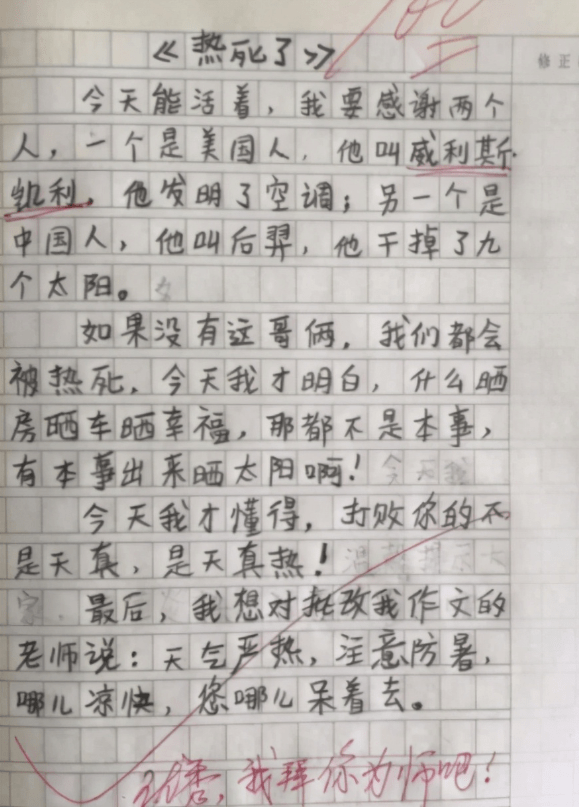 《热死了》
100
修正
今天能活着，我要感谢两个
人，一个是美国人，他叫威利斯
凯利，他发明了空调；另一个是
中国人，他叫后羿，他干掉了九
个太阳。
如果没有这哥俩，我们都会
被热死，今天我才明白，什么晒
房晒车晒幸福，那都不是本事，
有本事出来晒太阳啊！
今天我才懂得，打败你的不
是天真，是天真热！
最后，我想对批改我作文的
老师说：天气严热，注意防暑，
哪儿凉快，您哪儿呆着去。
优秀，我拜你为师吧！